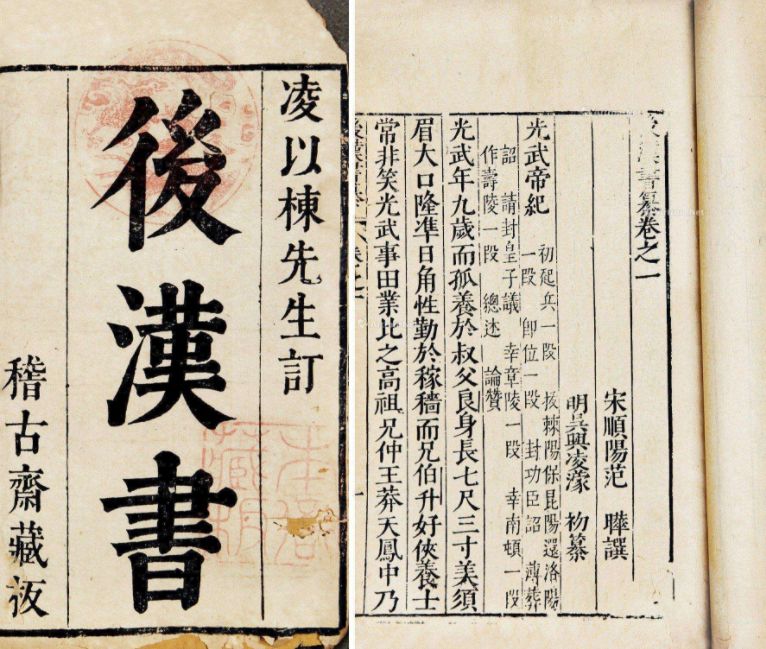 凌以棟先生訂
後漢書
稽古齋藏板
後漢書纂卷之一
宋順陽范曄譔
明吳興凌濛初纂
光武帝紀
初起兵一段 拔棘陽保昆陽還洛陽
一段 卽位一段 封功臣詔 薄葬
詔 請封皇子議 幸章陵一段 幸南頓一段
作壽陵一段 總述 論贊
光武年九歲而孤養於叔父良身長七尺三寸美須
眉大口隆準日角性勤於稼穡而兄伯升好俠養士
常非笑光武事田業比之高祖兄仲王莽天鳳中乃